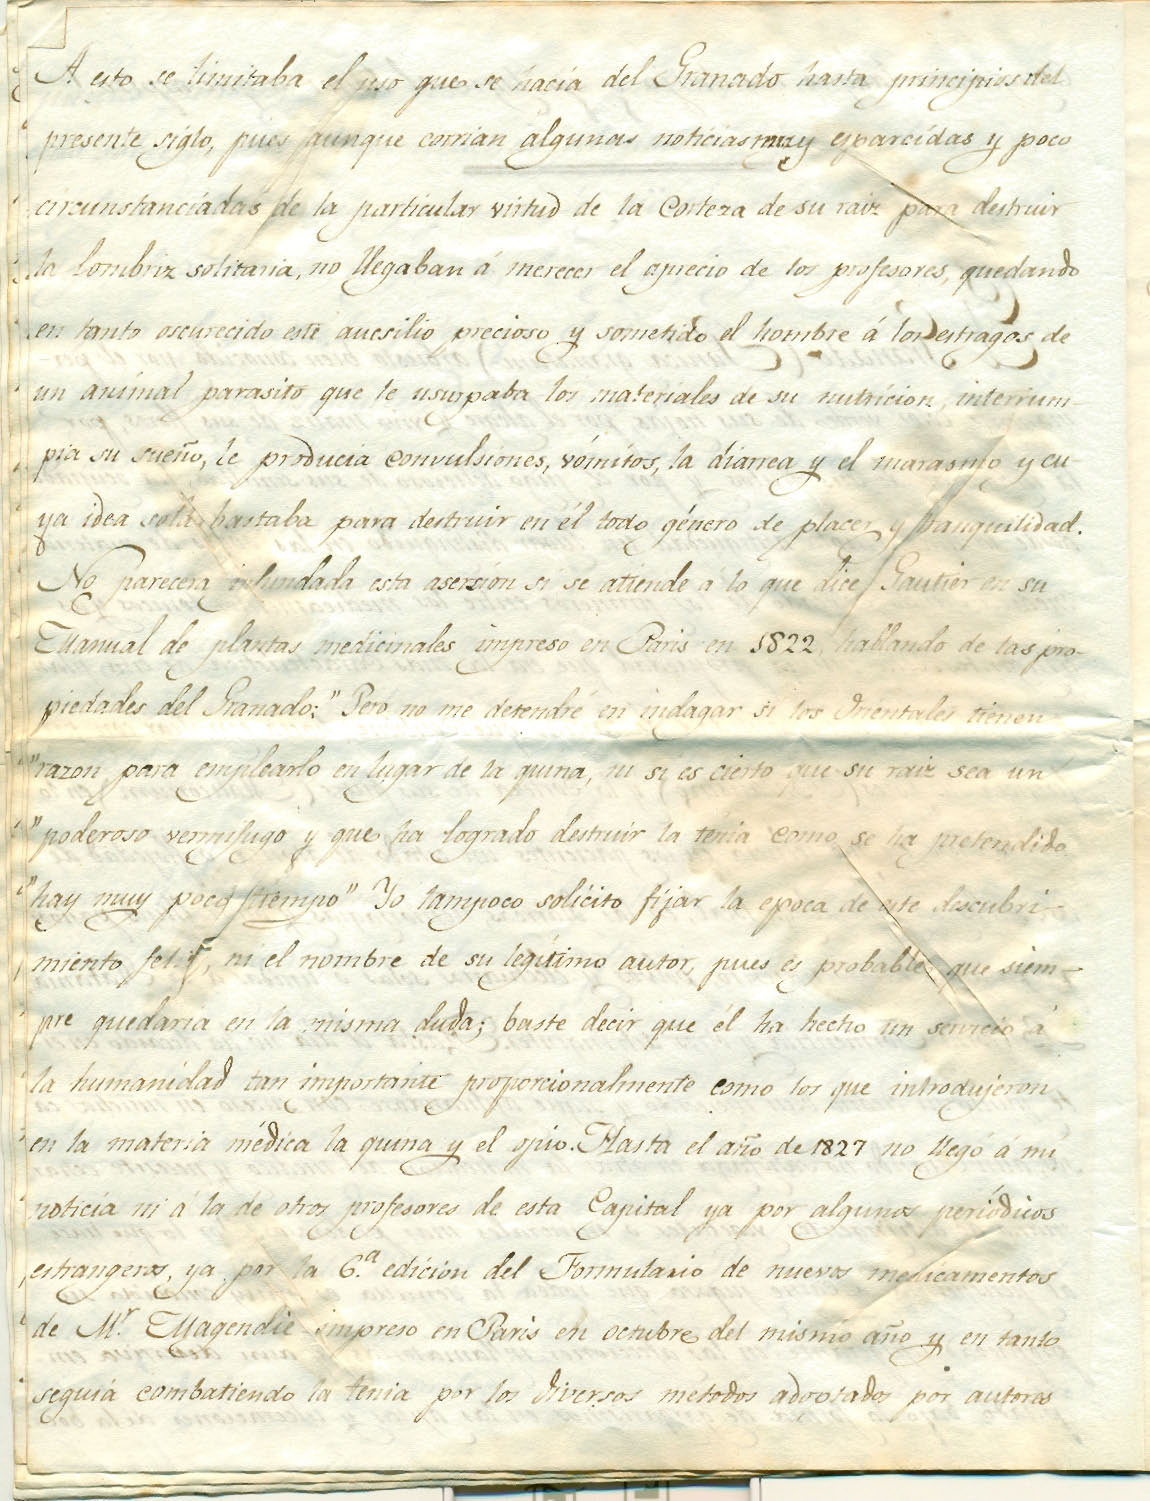 A esto se limitaba el uso que se hacía del Granado hasta principios del
presente siglo, pues aunque corrian algunas noticias muy esparcidas y poco
circunstanciadas de la particular virtud de la Corteza de su raiz para destruir
la lombriz solitaria, no llegaban á merecer el aprecio de los profesores, quedando
en tanto oscurecido este aucsilio precioso y sometido el hombre á los estragos de
un animal parasito que le usurpaba los materiales de su nutricion, interrum-
pia su sueño, le producia convulsiones, vómitos, la diarrea y el marasmo y cu
ya idea sola bastaba para destruir en él todo género de placer y tranquilidad.
No parecera infundada esta asersion si se atiende á lo que dice Gautier en su
Manual de plantas medicinales impreso en Paris en 1822 hablando de las pro-
piedades del Granado: "Pero no me detendré en indagar si los Orientales tienen
"razon para emplearlo en lugar de la quina, ni si es cierto que su raiz sea un
"poderoso vermifugo y que ha logrado destruir la tenia como se ha pretendido
"hay muy poco tiempo" Yo tampoco solicito fijar la epoca de este descubri-
miento feliz, ni el nombre de su legítimo autor, pues es probable, que siem-
pre quedaria en la misma duda; baste decir que él ha hecho un servicio á
la humanidad tan importante proporcionalmente como los que introdujeron
en la materia médica la quina y el opio. Hasta el año de 1827 no llegó á mi
noticia ni á la de otros profesores de esta Capital ya por algunos periódicos
estrangeros, ya por la 6.ª edición del Formulario de nuevos medicamentos
de Mr. Magendie impreso en Paris en octubre del mismo año y en tanto
seguiá combatiendo la tenia por los diversos metodos adoptados por autores